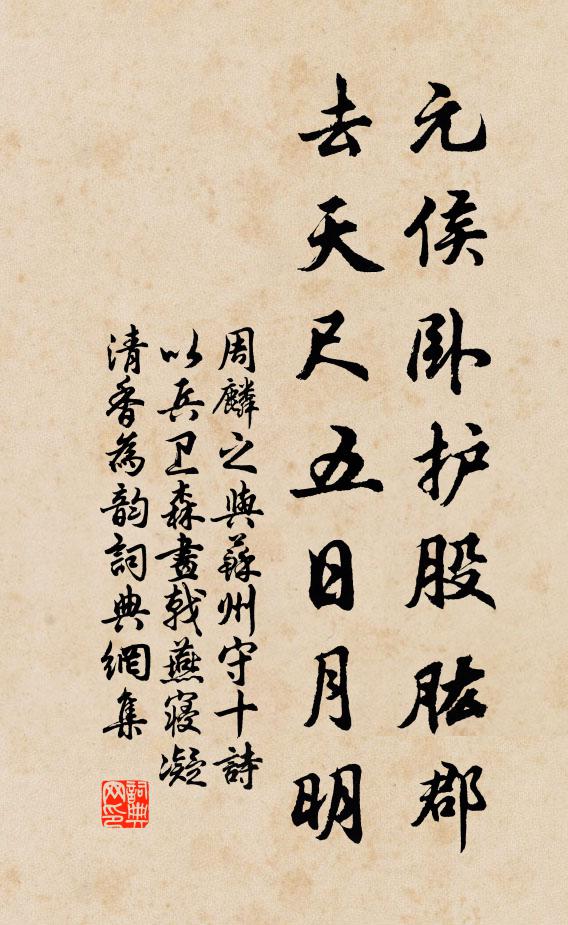 元侯卧护股肱郡
去天尺五日月明
周麟之與蘇州守十詩
以兵卫森畫戟燕寝凝
清香為韵詞典網集
詞典网印